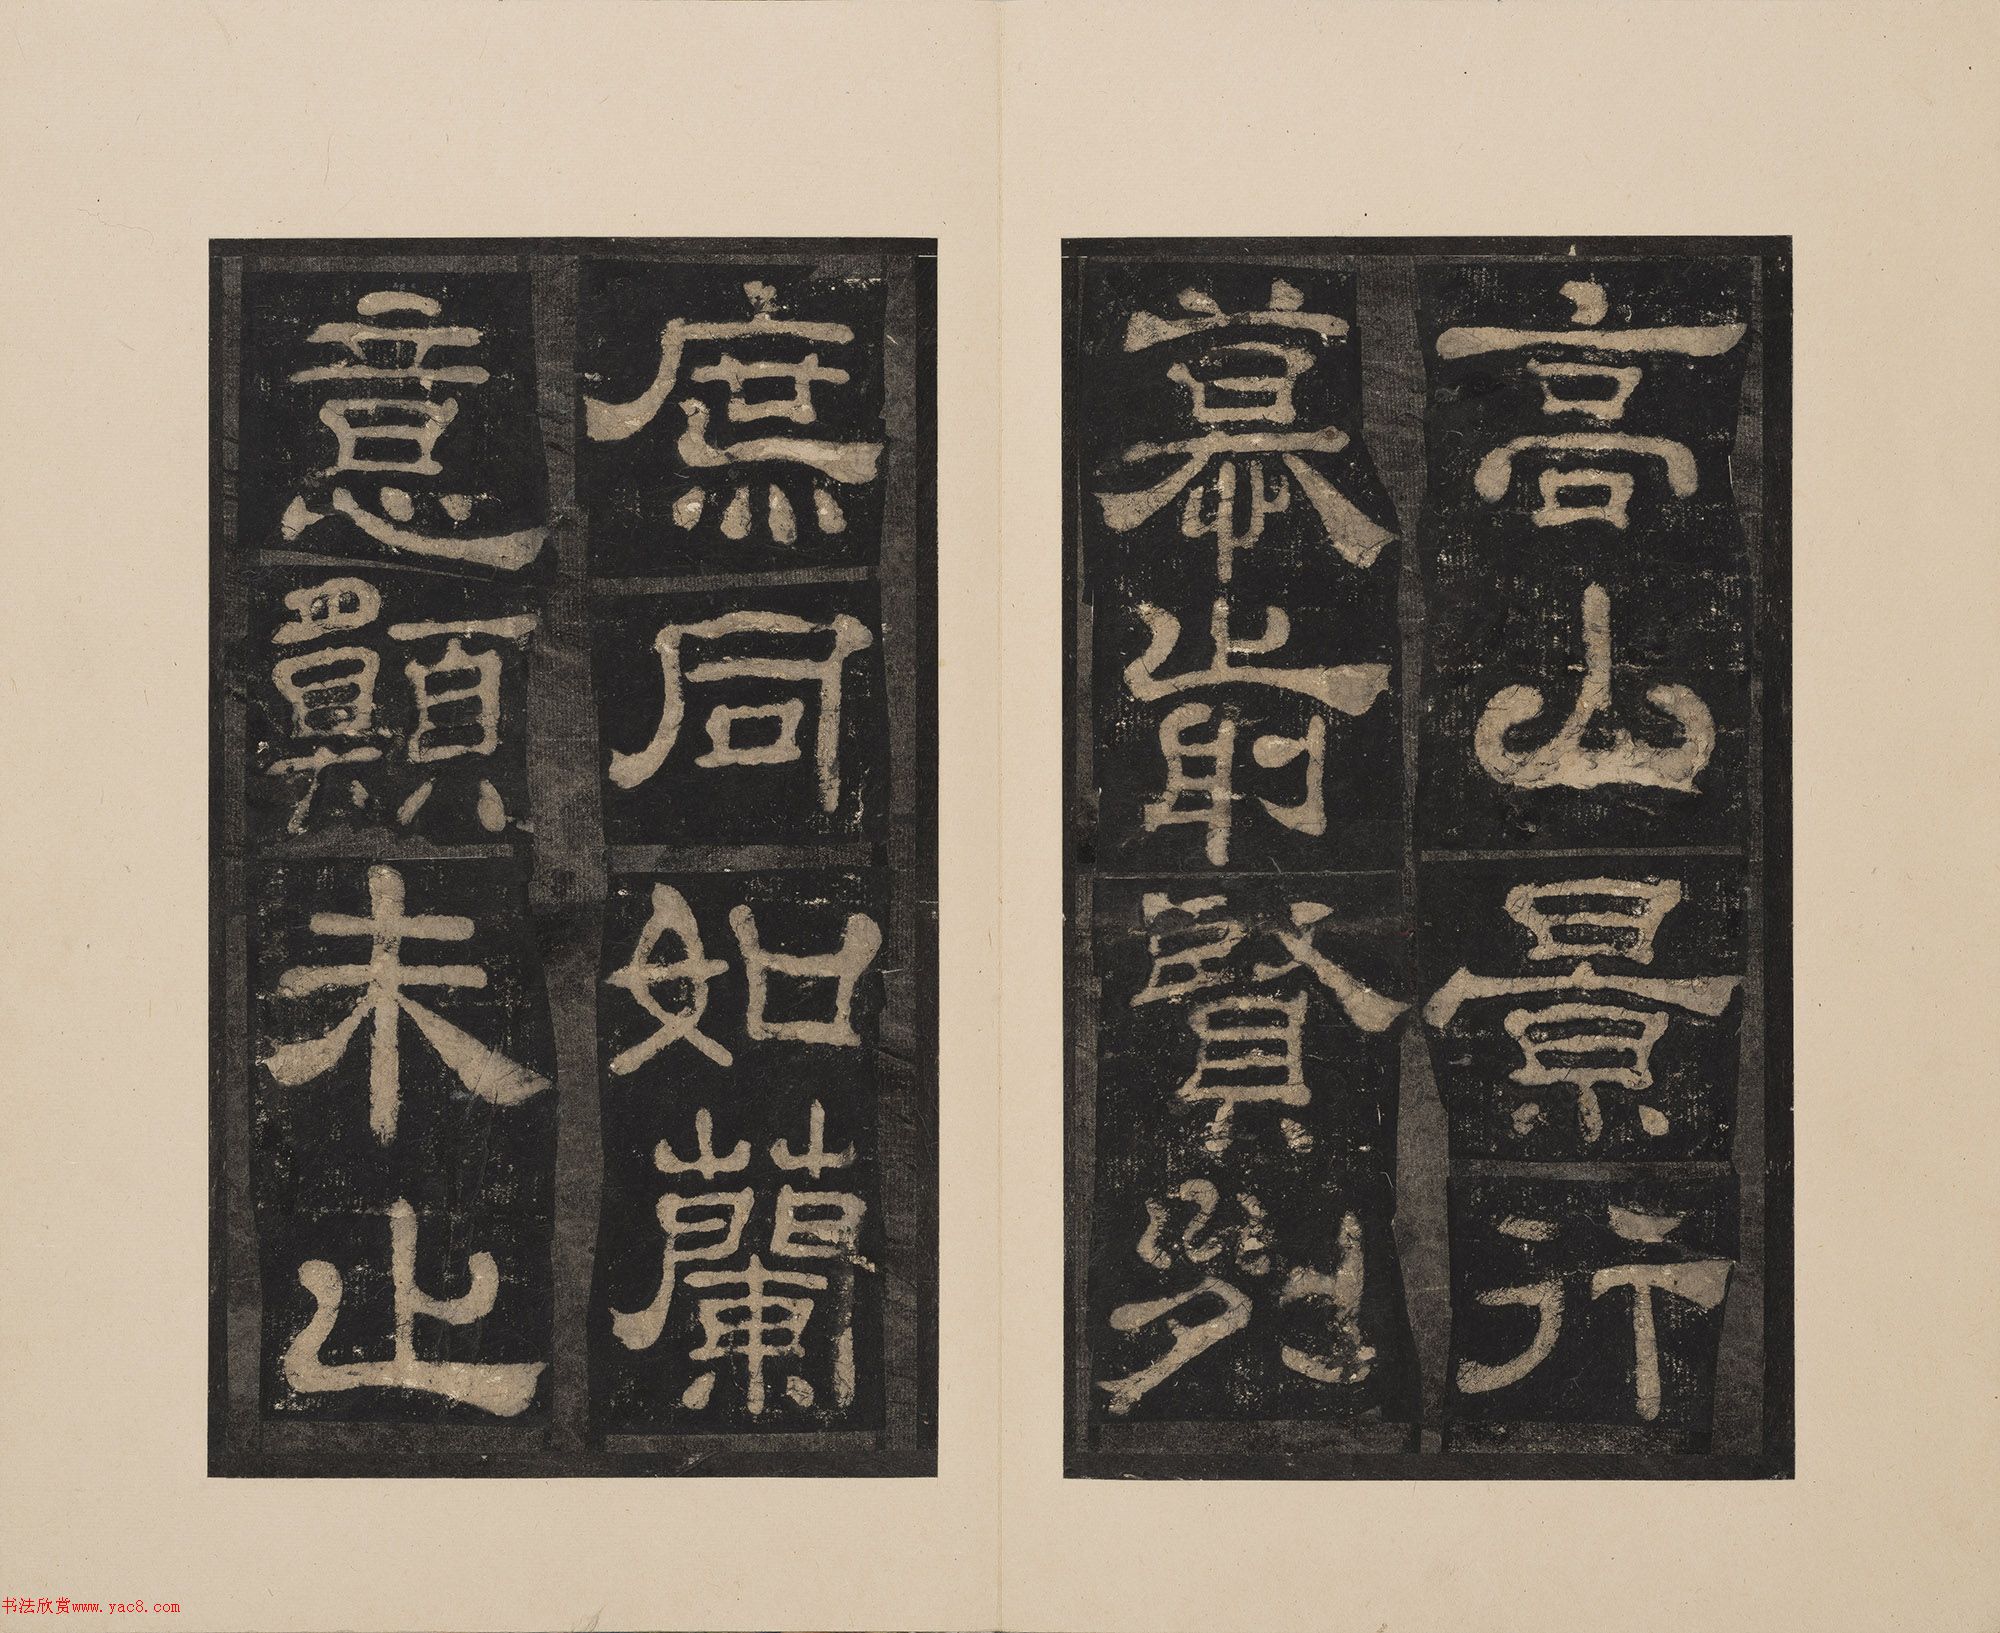 高山景行
慕前賢列
庶同如蘭
意願未止
书法欣赏www.yac8.com